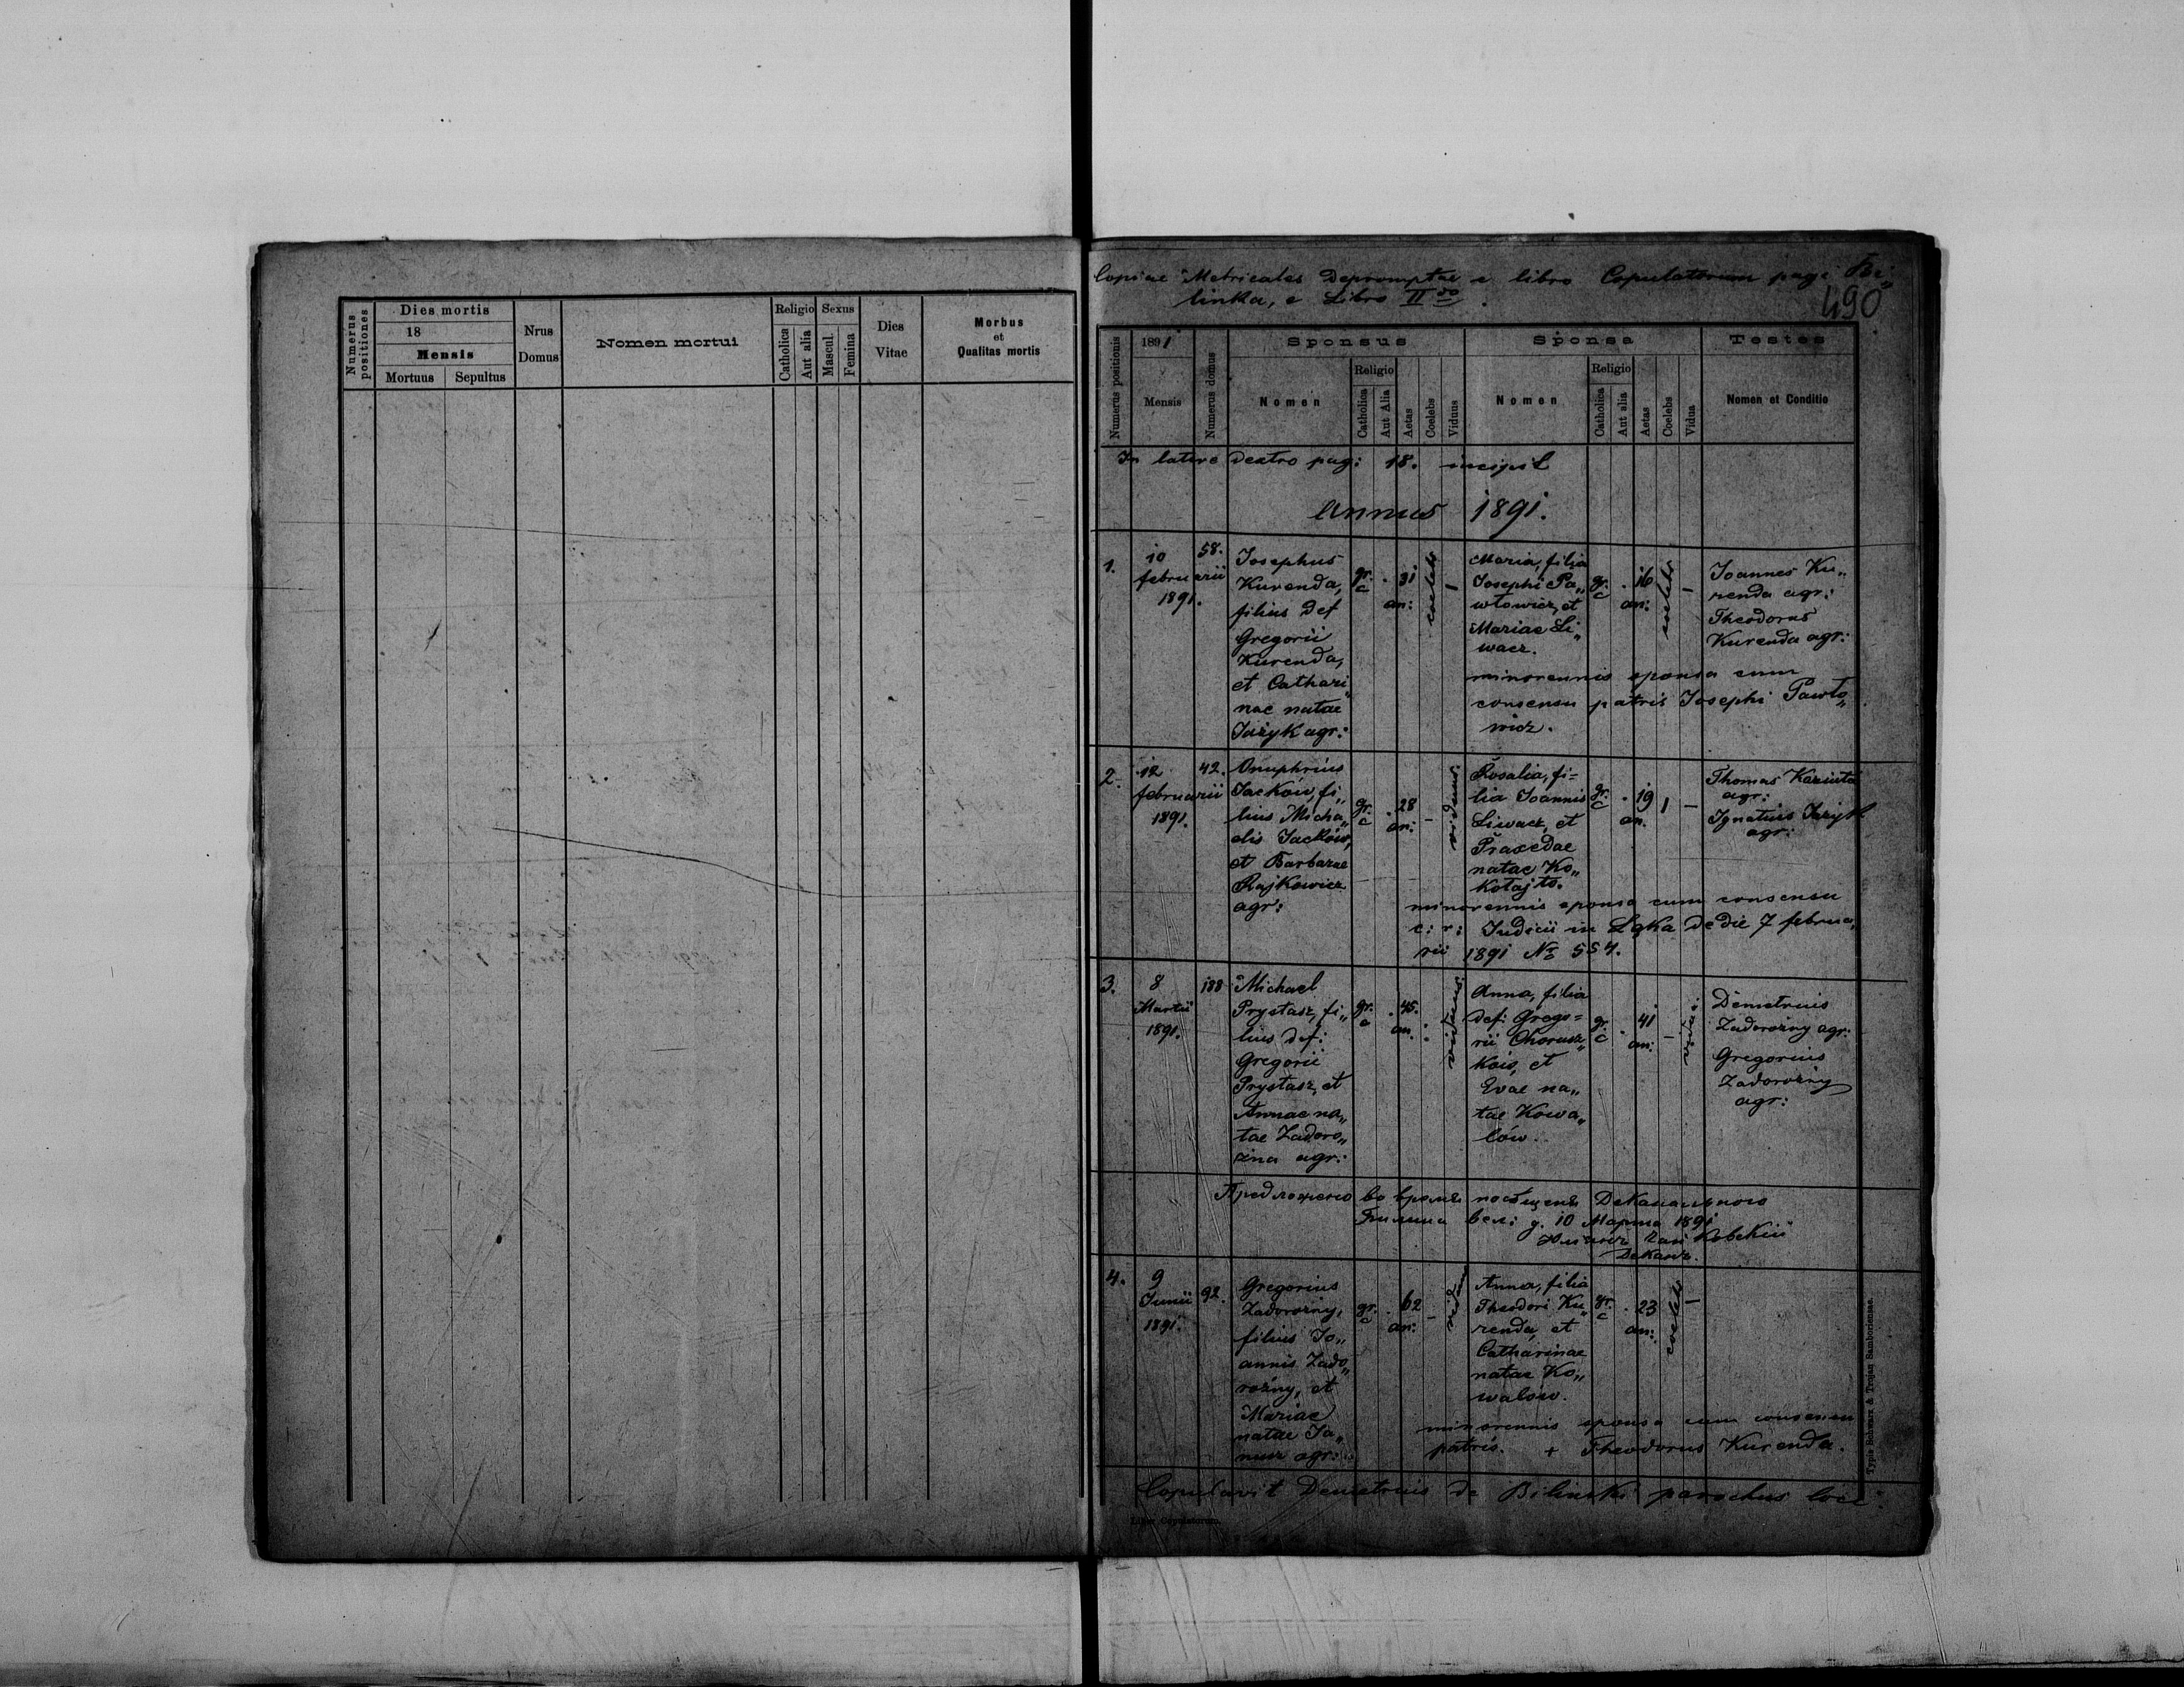 Numerus positiones
Dies mortis
18
Mensis
Mortuus
Sepultus
Nrus Domus
Nomen mortui
Religio
Catholica
Aut alia
Sexus
Mascul.
Femina
Dies Vitae
Morbus
et
Qualitas mortis
Copiae Metricales Depromptae e libro Copulatorum pagi Bi„
linka, e Libro II do.
490
Numerus positionis
1891
Mensis
Numerus domus
Sponsus
Nomen
Religio
Catholica
Aut Alia
Aetas
Coelebs
Viduus
Sponsa
Nomen
Religio
Catholica
Aut alia
Aetas
Coelebs
Vidua
Testes
Nomen et Conditio
In latere dextro pag: 18. incipit
Annus 1891.
1.
10
februarii
1891.
58.
Josephus
Kurenda,
filius def
Gregorii
Kurenda,
et Cathari„
nae natae
Jażyk agr:
gr.
c
.
31
an:
coelebs
–
Maria, filia
Josephi Pa„
włowicz, et
Mariae Li„
wacz.
gr.
c
.
16
an:
coelebs
–
Joannes Ku„
renda agr:
Theodorus
Kurenda agr:
minorennis sponsa cum
consensu patris Josephi Pawło„
wicz.
2.
12
februarii
1891.
42.
Onuphrius
Jacków, fi„
lius Micha„
elis Jacków,
et Barbarae
Rajkowicz
agr:
gr.
c
.
28
an:
–
viduus.
Rosalia, fi=
lia Joannis
Liwacz, et
Praxedae
natae Ko„
kotajło.
gr.
c
.
19
an.
1
–
Thomas
agr:
Ignatius Jażyk
agr:
minorennis sponsa cum consensu
c: r: Judicii in Łąka de die 7 februa„
rii 1891 № 554.
3.
8
Martii
1891.
188
Michael
Prystasz, fi„
lius def:
Gregorii
Prystasz, et
Annae na„
tae Zadoro„
żna agr:
gr.
c
.
45.
an.
:
viduus.
Anna, filia
def: Grego=
rii
ków, et
Evae na„
tae Kowa„
lów.
gr.
c
.
41
an:
–
vidua
Demetrius
Zadorożny agr:
Gregorius
Zadorożny
agr:
Предложено во время Деканального
10 Марта 1891
Деканъ.
4.
9
Junii
1891.
92.
Gregorius
Zadorożny,
filius Jo„
annis Zado„
rożny, et
Mariae
natae Ja„
nusz agr:
gr.
c
.
62
an:
–
viduus
Anna, filia
Theodori Ku„
renda, et
Catharinae
natae Ko„
walów.
gr.
c
.
23
an:
coelebs
–
minorennis sponsa cum consensu
patris. + Theodorus Kurenda.
Copulavit Demetrius de Bilinski parochus loci.
Liber Copulatorum.
Typis Schwarz & Trojan Samboriensae.